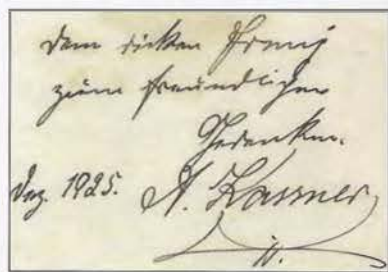 Dem dicken Franz
zum freundlichen
Gedenken.
Dez. 1925. A. Kassner